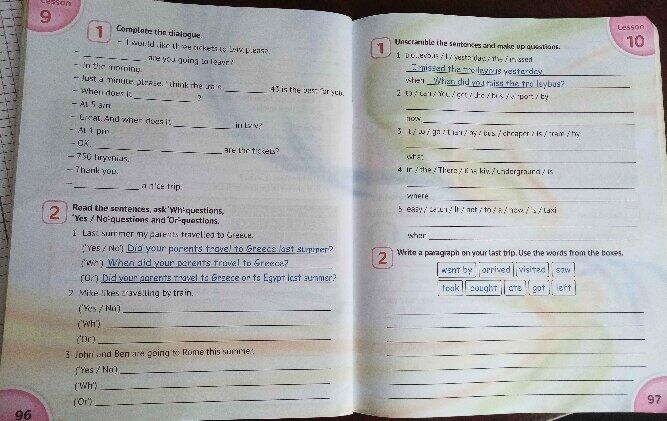 Lesson
9
1 Complete the dialogue.
– I would like three tickets to Lviv, please.
– ____________ are you going to leave?
– In the morning.
– Just a minute, please. I think the train ________ 43 is the best for you.
– When does it ____________ ?
– At 5 am.
– Great. And when does it ____________ in Lviv?
– At 1 pm.
– OK. ____________ are the tickets?
– 750 hryvnias.
– Thank you.
– ____________ a nice trip.
2 Read the sentences, ask 'Wh'-questions,
'Yes / No'-questions and 'Or'-questions.
1 Last summer my parents travelled to Greece.
('Yes / No') Did your parents travel to Greece last summer?
('Wh') When did your parents travel to Greece?
('Or') Did your parents travel to Greece or to Egypt last summer?
2 Mike likes travelling by train.
('Yes / No')
('Wh')
('Or')
3 John and Ben are going to Rome this summer.
('Yes / No')
('Wh')
('Or')
96
Lesson
10
1 Unscramble the sentences and make up questions.
1 trolleybus / I / yesterday / the / missed
I missed the trolleybus yesterday.
when When did you miss the trolleybus?
2 to / can / You / get / the / bus / airport / by
how
3 It / to / go / than / by / bus / cheaper / is / train / by
what
4 in / the / There / Kharkiv / underground / is
where
5 easy / catch / It / not / to / a / now / is / taxi
when
2 Write a paragraph on your last trip. Use the words from the boxes.
went by arrived visited saw
took bought ate got left
97